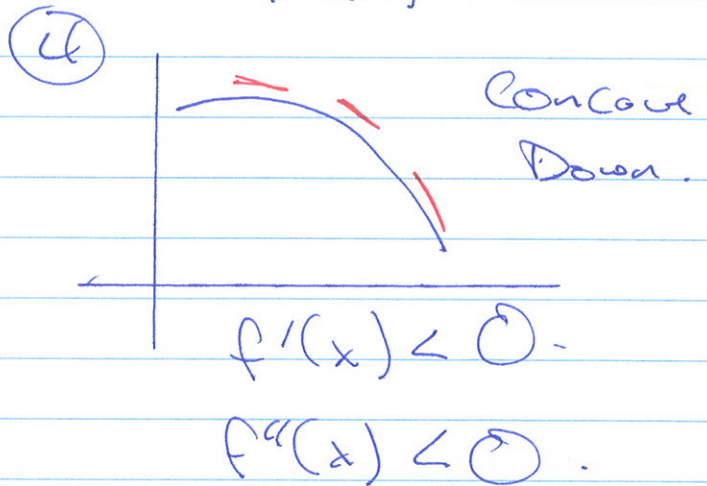 4
Concave
Down.
f'(x) < 0.
f''(x) < 0.